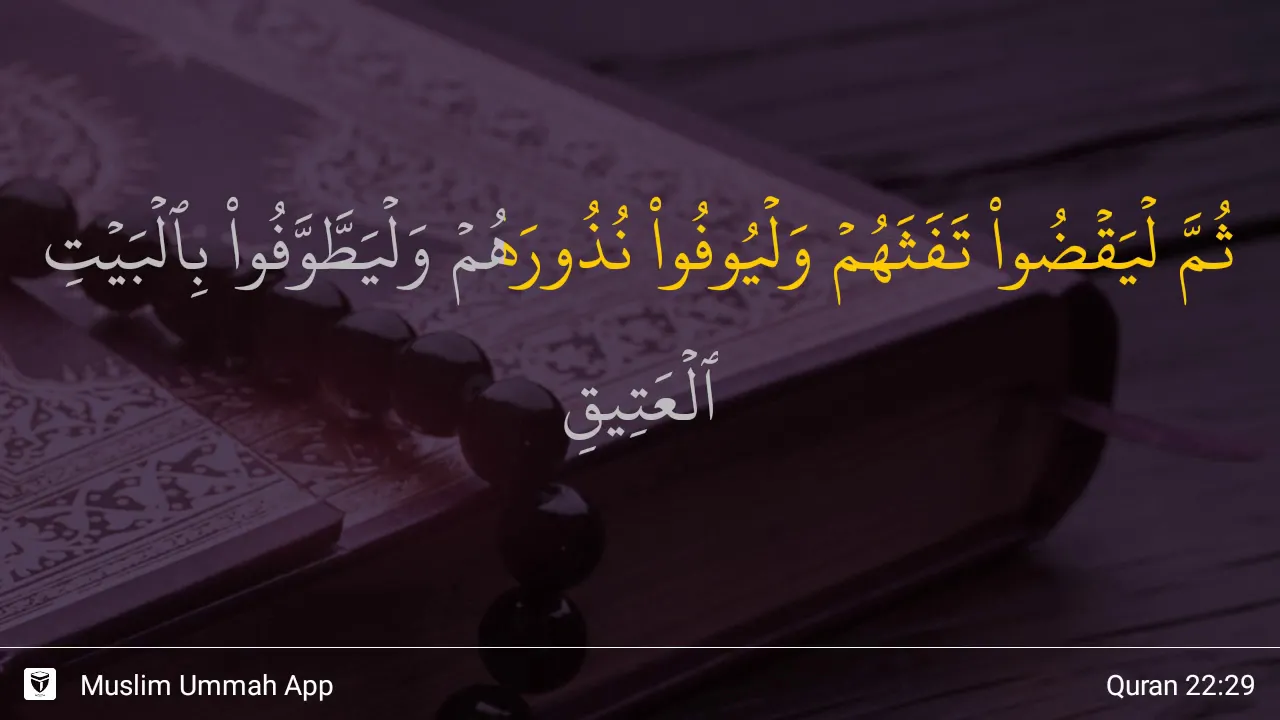 ثُمَّ لۡيَقۡضُواْ تَفَثَهُمۡ وَلۡيُوفُواْ نُذُورَهُمۡ وَلۡيَطَّوَّفُواْ بِٱلۡبَيۡتِ
ٱلۡعَتِيقِ
Muslim Ummah App
Quran 22:29